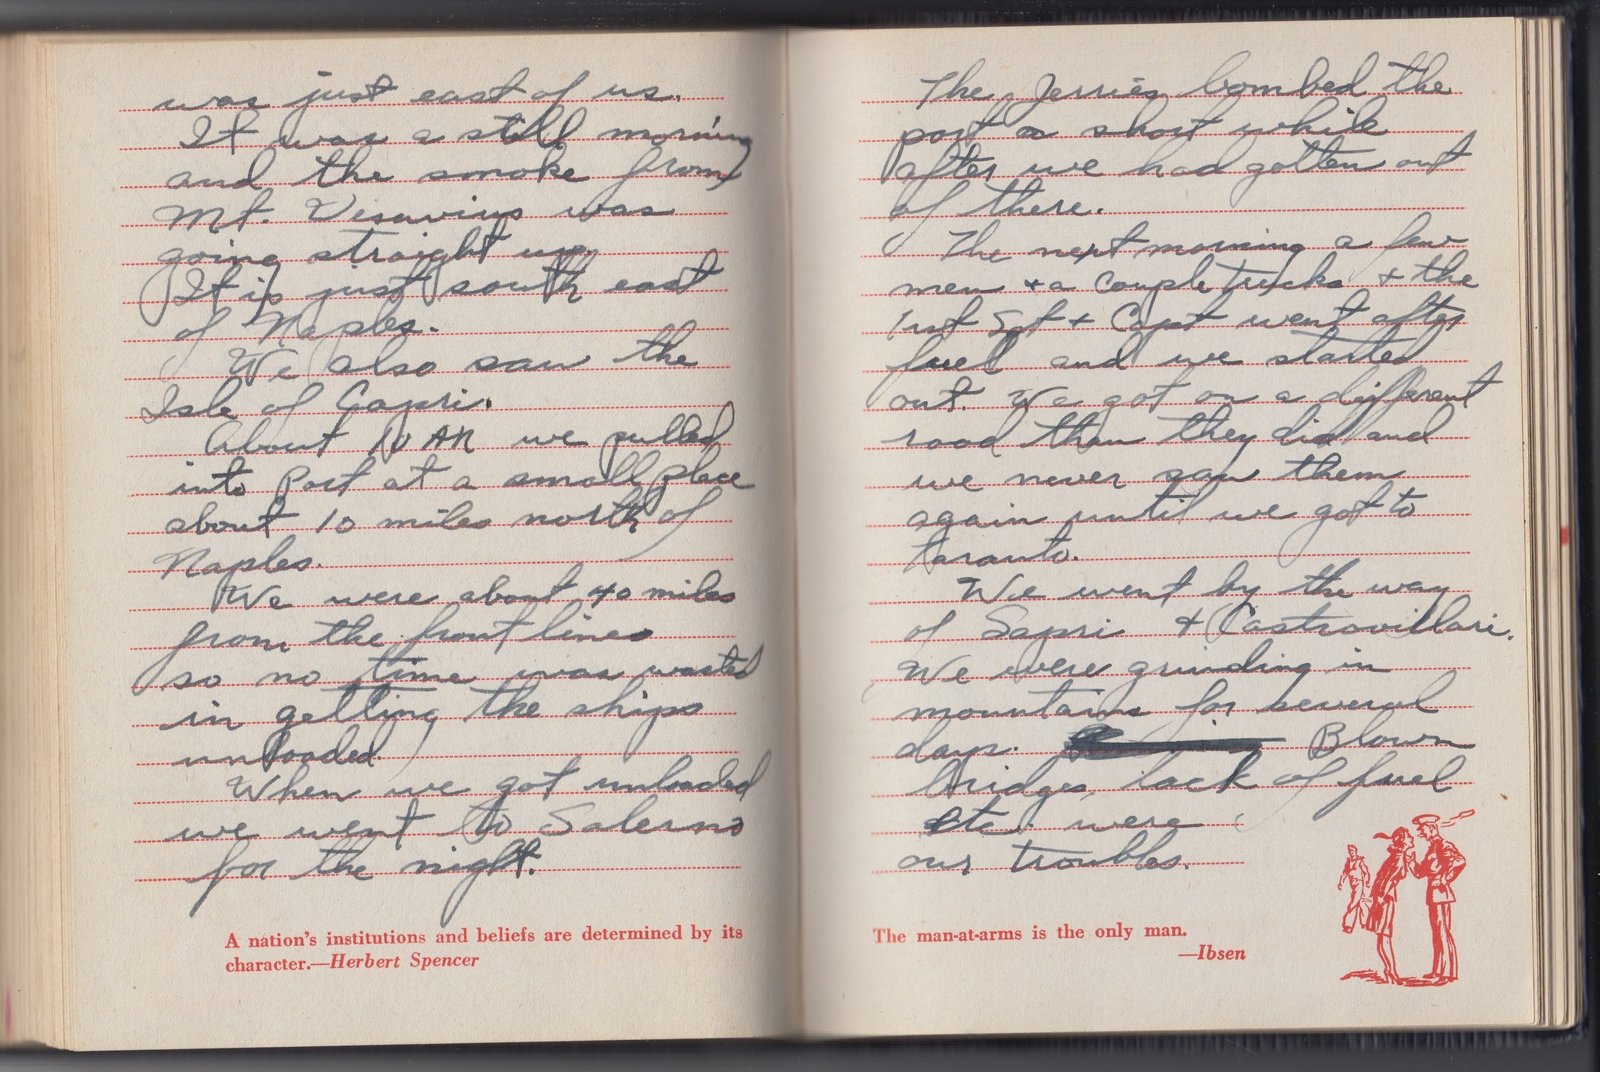 was just east of us.
It was a still morning
and the smoke from
Mt. Vesuvius was
going straight up.
It is just south east
of Naples.
We also saw the
Isle of Capri.
About 10 AM we pulled
into Port at a small place
about 10 miles north of
Naples.
We were about 40 miles
from the front lines
so no time was wasted
in getting the ships
unloaded.
When we got unloaded
we went to Salerno
for the night.
A nation's institutions and beliefs are determined by its
character.—Herbert Spencer
The Jerries bombed the
port a short while
after we had gotten out
of there.
The next morning a few
men + a couple trucks + the
1rst Sgt + Capt went after
fuel and we started
out. We got on a different
road than they did and
we never saw them
again until we got to
Taranto.
We went by the way
of Sapri + Castrovillari.
We were grinding in
mountains for several
days. Blown
bridges, lack of fuel
etc were
our troubles.
The man-at-arms is the only man.
—Ibsen